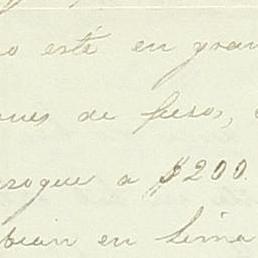 o esté en gran
ones de peso,
azogue a $200.
bian en Lima